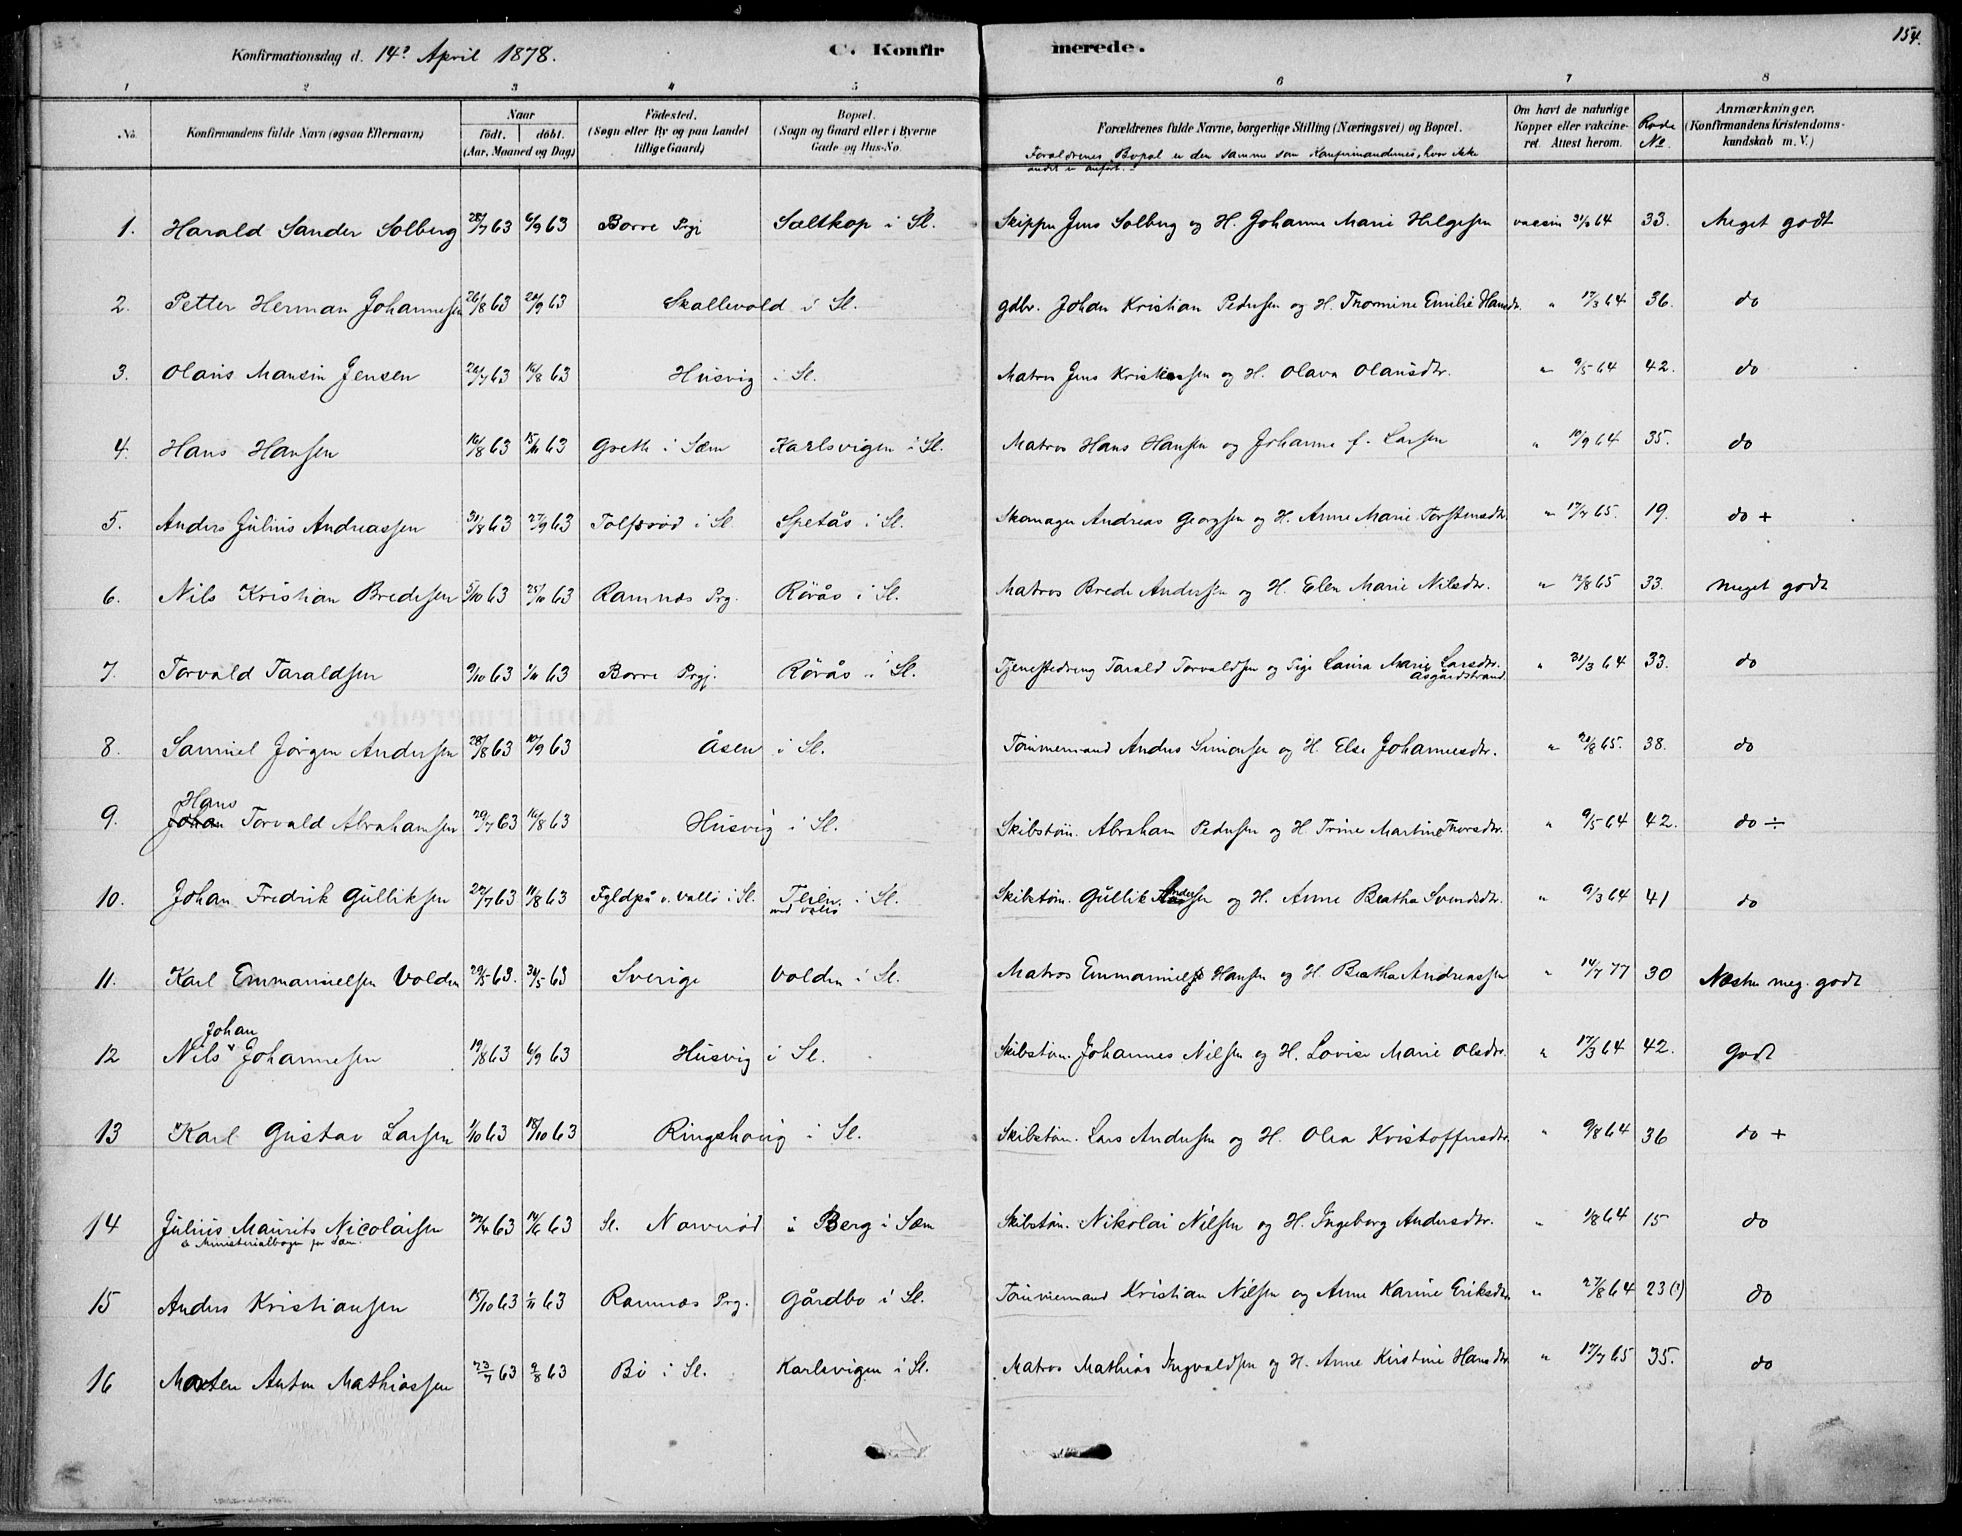 154.
Konfirmationsdag d. 14de April 1878. C. Konfirmerede.
1 2 3 4 5 6 7 8
No. Konfirmandens fulde Navn (ogsaa Efternavn) Naar født. døbt. (Aar, Maaned og Dag) Fødested. (Sogn eller By og paa Landet tillige Gaard) Bopæl. (Sogn og Gaard eller i Byerne Gade- og Hus-No. Forældrenes fulde Navne, borgerlige Stilling (Næringsvei) og Bopæl. Om havt de naturlige Kopper eller vakcineret. Attest herom. Rode No Anmærkninger. (Konfirmandens Kristendomskundskab m. V.)
Forældrenes Bopæl er den samme som Konfirmandernes, hvor ikke andet er anført.
1. Harald Sander Solberg 28/7 63 6/9 63 Borre Prgj Saltkop i Sl. Skipper Jens Solberg og H. Johanne Marie Helgesen vaccin 31/3 64 33. Meget godt
2. Petter Herman Johannesen 26/8 63 20/9 63 Skallevold i Sl. gdbr. Johan Kristian Pedersen og H. Thormine Emilie Hansdr. " 17/3 64 36. do
3. Olaus Mausin Jensen 20/7 63 16/8 63 Husvig i Sl. Matros Jens Kristiansen og H. Olava Olausdr. " 9/5 64 42. do
4. Hans Hansen 16/8 63 15/11 63 Greth i Sæm Karlsvigen i Sl. Matros Hans Hansen og Johanne f. Larsen " 10/9 64 35. do
5. Anders Julius Andreassen 31/8 63 27/9 63 Tolfsrød i Sl Spetås i Sl. Skomager Andreas Georgsen og H. Anne Marie Torstensdr. " 17/7 65. 19. do +
6. Nils Kristian Bredesen 5/10 63 25/10 63 Ramnæs Prg. Rørås i Sl. Matros Brede Andersen og H. Elen Marie Nilsdr. " 12/8 65 33. Meget godt
7. Torvald Taraldsen 9/10 63 1/11 63 Borre Prgj. Rørås i Sl. Tjenestedreng Tarald Torvaldsen og Pige Laura Marie Larsdr. Åsgårdstrand " 31/3 64 33. do
8. Samuel Jørgen Andersen 28/8 63 10/9 63 Åsen i Sl. Tømmermand Anders Simonsen og H. Else Johannesdr. " 20/8 65. 38. do
9. Hans Torvald Abrahamsen 20/7 63 16/8 63 Husvig i Sl. Skibstøm. Abraham Pedersen og H. Trine Martine Thorsdr. " 9/5 64 42. do ÷
10. Johan Fredrik Gulliksen 22/7 63 11/8 63 Fyldpå v. Vallø i Sl. Teien ved Vallø i Sl. Skibstøm. Gullik Andersen og H. Anne Beatha Svendsdr. " 9/3 64 41 do
11. Karl Emmanuelsen Volden 20/5 63. 31/5 63 Sverige Volden i Sl. Matros Emmanuel Hansen og H Beatha Andreassen " 14/7 77 30 Næsten meg. godt
12 Nils Johan Johannesen 19/8 63 6/9 63 Husvig i Sl. Skibstøm. Johannes Nilsen og H. Lovise Marie Olsdr. " 17/3 64 42. godt
13 Karl Gustav Larsen 1/10 63 18/10 63 Ringshoug i Sl. Skibstøm. Lars Andersen og H. Olea Kristoffersdr. " 9/8 64 36 do +
14 Julius Maurits Nicolaisen 22/4 63 14/6 63 Sl. Narverød i Berg i Sæm Skibstøm. Nikolai Nilsen og H. Ingeborg Andersdr. " 1/8 64 15 do
a Ministerialbogen for Sæm.
15 Anders Kristiansen 15/10 63 1/11 63 Ramnæs Prg. Gårdbo i Sl. Tømmermand Kristian Nilsen og Anne Karine Eriksdr. " 27/8 64 23 (?) do
16 Morten Anton Mathiassen 23/7 63 9/8 63 Bø i Sl. Karlsvigen i Sl. Matros Mathias Ingvaldsen og H. Anne Kirstine Hansdr. " 17/7 65 35. do